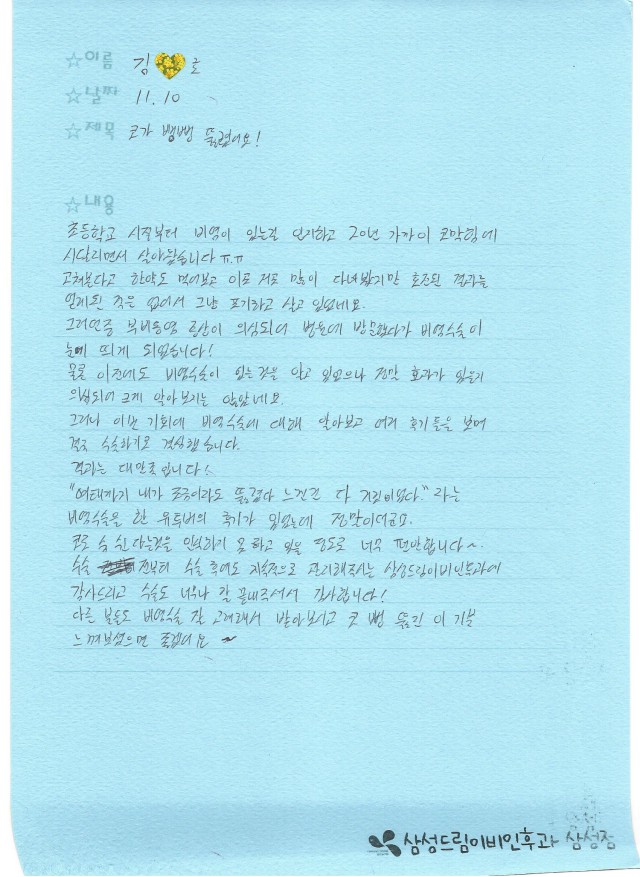 ☆이름 김💛호
☆날짜 11.10
☆제목 코가 뻥뻥 뚫렸어요!
☆내용
초등학교 시절부터 비염이 있는걸 인지하고 20년 가까이 코막힘에
시달리면서 살아왔습니다 ㅠㅠ
고쳐본다고 한약도 먹어보고 이리 저리 많이 다녀봤지만 호전된 결과를
얻게된 적은 없어서 그냥 포기하고 살고 있었네요.
그러던중 부비동염 증상이 의심되어 병원에 방문했다가 비염수술이
눈에 띄게 되었습니다!
물론 이전에도 비염수술이 있는것을 알고 있었으나 정말 효과가 있을지
의심되어 크게 알아보지는 않았네요.
그러나 이번 기회에 비염수술에 대해 알아보고 여러 후기들을 보며
적극 수술하기로 결심했습니다.
결과는 대만족입니다
"여태까지 내가 조금이라도 뚫렸다 느낀건 다 거짓이었다." 라는
비염수술을 한 유투버의 후기가 있었는데 정말이더군요.
코로 숨 쉰다는것을 인식하기 못 하고 있을 정도로 너무 편안합니다~.
수술 전부터 수술 후에도 지속적으로 관리해주시는 삼성드림이비인후과에
감사드리고 수술도 너무나 잘 끝내주셔서 감사합니다!
다른 분들도 비염수술 잘 고려해서 받아보시고 코 뻥 뚫린 이 기분
느껴보셨으면 좋겠네요 ~
삼성드림이비인후과 삼성점